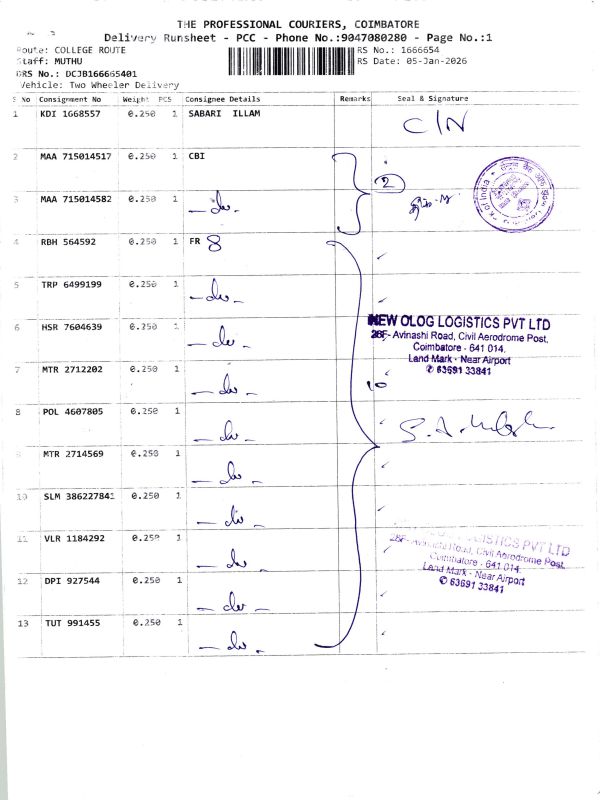 THE PROFESSIONAL COURIERS, COIMBATORE
Delivery Runsheet - PCC - Phone No.:9047080280 - Page No.:1
Route: COLLEGE ROUTE
RS No.: 1666654
Staff: MUTHU
RS Date: 05-Jan-2026
DRS No.: DCJB166665401
Vehicle: Two Wheeler Delivery
S No Consignment No Weight PCS Consignee Details Remarks Seal & Signature
1 KDI 1668557 0.250 1 SABARI ILLAM C/N
2 MAA 715014517 0.250 1 CBI
2
3 MAA 715014582 0.250 1 - do -
of India
4 RBH 564592 0.250 1 FR 8
5 TRP 6499199 0.250 1 - do -
6 HSR 7604639 0.250 1 - do -
NEW OLOG LOGISTICS PVT LTD
28F- Avinashi Road, Civil Aerodrome Post,
Coimbatore - 641 014.
Land Mark - Near Airport
✆ 63691 33841
7 MTR 2712202 0.250 1 - do -
10
8 POL 4607805 0.250 1 - do -
9 MTR 2714569 0.250 1 - do -
10 SLM 386227841 0.250 1 - do -
11 VLR 1184292 0.250 1 - do -
OLOG LOGISTICS PVT LTD
28F- Avinashi Road, Civil Aerodrome Post,
Coimbatore - 641 014.
Land Mark - Near Airport
✆ 63691 33841
12 DPI 927544 0.250 1 - do -
13 TUT 991455 0.250 1 - do -